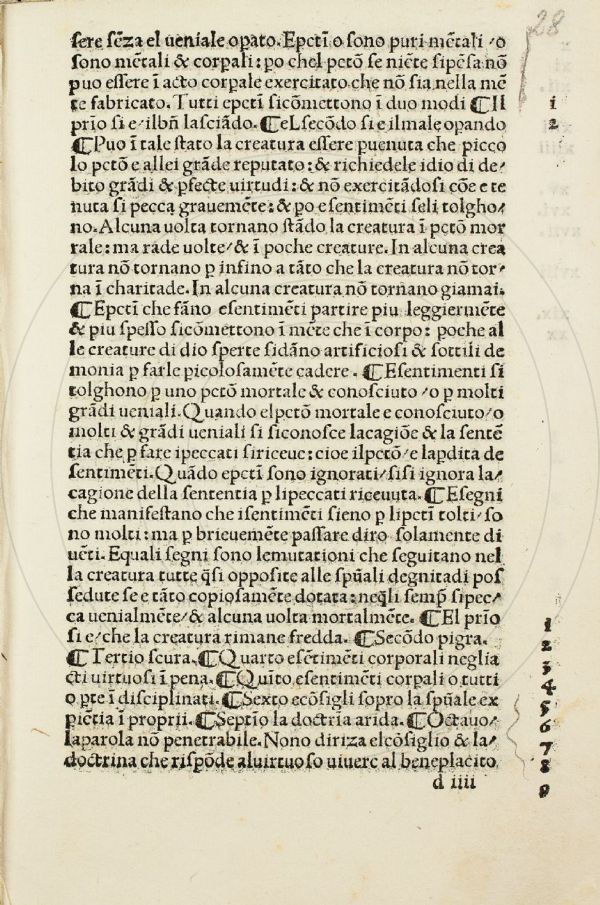 28
ſere ſẽza el ueniale opato. Epctĩ o sono puri mẽtali / o
ſono mẽtali & corpali : po chel pctõ ſe niẽte ſipẽſa nõ
puo eſſere ĩ acto corpale exercitato che nõ ſia nella mẽ
te fabricato. Tutti epctĩ ſicõmettono ĩ duo modi ¶Il
1
prĩo ſi e / ilbñ laſciãdo. ¶eL ſecõdo ſi e ilmale opando
2
¶Puo ĩ tale ſtato la creatura eſſere puenuta che picco
lo pctõ e allei grãde reputato : & richiedele idio di de/
bito grãdi & pfecte uirtudi : & nõ exercitãdoſi cõe e te
nuta ſi pecca grauemẽte : & po e ſentimẽti ſeli tolgho/
no. Alcuna uolta tornano ſtãdo la creatura ĩ pctõ mor
rale : ma rade uolte / & ĩ poche creature. In alcuna crea
tura nõ tornano p infino a tãto che la creatura nõ tor/
na ĩ charitade. In alcuna creatura nõ tornano giamai.
¶Epctĩ che fãno eſentimẽti partire piu leggiermẽte
& piu ſpeſſo ſicõmettono ĩ mẽte che ĩ corpo : poche al
le creature di dio ſperte ſidãno artificioſi & ſottili de
monia p farle picoloſamẽte cadere. ¶Eſentimenti ſi
tolghono p uno pctõ mortale & conoſciuto / o p molti
grãdi ueniali. Quando elpctõ mortale e conoſciuto / o
molti & grãdi ueniali ſi ſiconoſce lacagiõe & la ſentẽ
tia che p fare ipeccati ſiriceue : cioe ilpctõ / e lapdita de
ſentimẽti. Quãdo epctĩ ſono ignorati / ſiſi ignora la/
cagione della ſententia p lipeccati riceuuta. ¶Eſegni
che manifeſtano che iſentimẽti ſieno p lipctĩ tolti / ſo
no molti : ma p brieuemẽte paſſare diro ſolamente di
uẽti. Equali ſegni ſono lemutationi che ſeguitano nel
la creatura tutte q̃ſi oppoſite alle ſpũali degnitadi poſ
ſedute ſe e tãto copioſamẽte dotata : neq̃li ſemp̃ ſipec/
ca uenialmẽte / & alcuna uolta mortalmẽte. ¶El prĩo
1
ſi e / che la creatura rimane fredda. ¶Secõdo pigra.
2
¶Tertio ſcura. ¶Quarto eſẽtimẽti corporali neglia
3
cti uirtuoſi ĩ pena. ¶Quĩto eſentimẽti corpali o tutti
4
o pte ĩ diſciplinati. ¶Sexto ecõſigli ſopro la ſpũale ex
5
piẽtia ĩ proprii. ¶Septĩo la doctrĩa arida. ¶Octauo/
6
laparola nõ penetrabile. Nono diriza elcõſiglio & la/
7
doctrina che riſpõde aluirtuoſo uiuere al beneplacito
8
d iiii
9